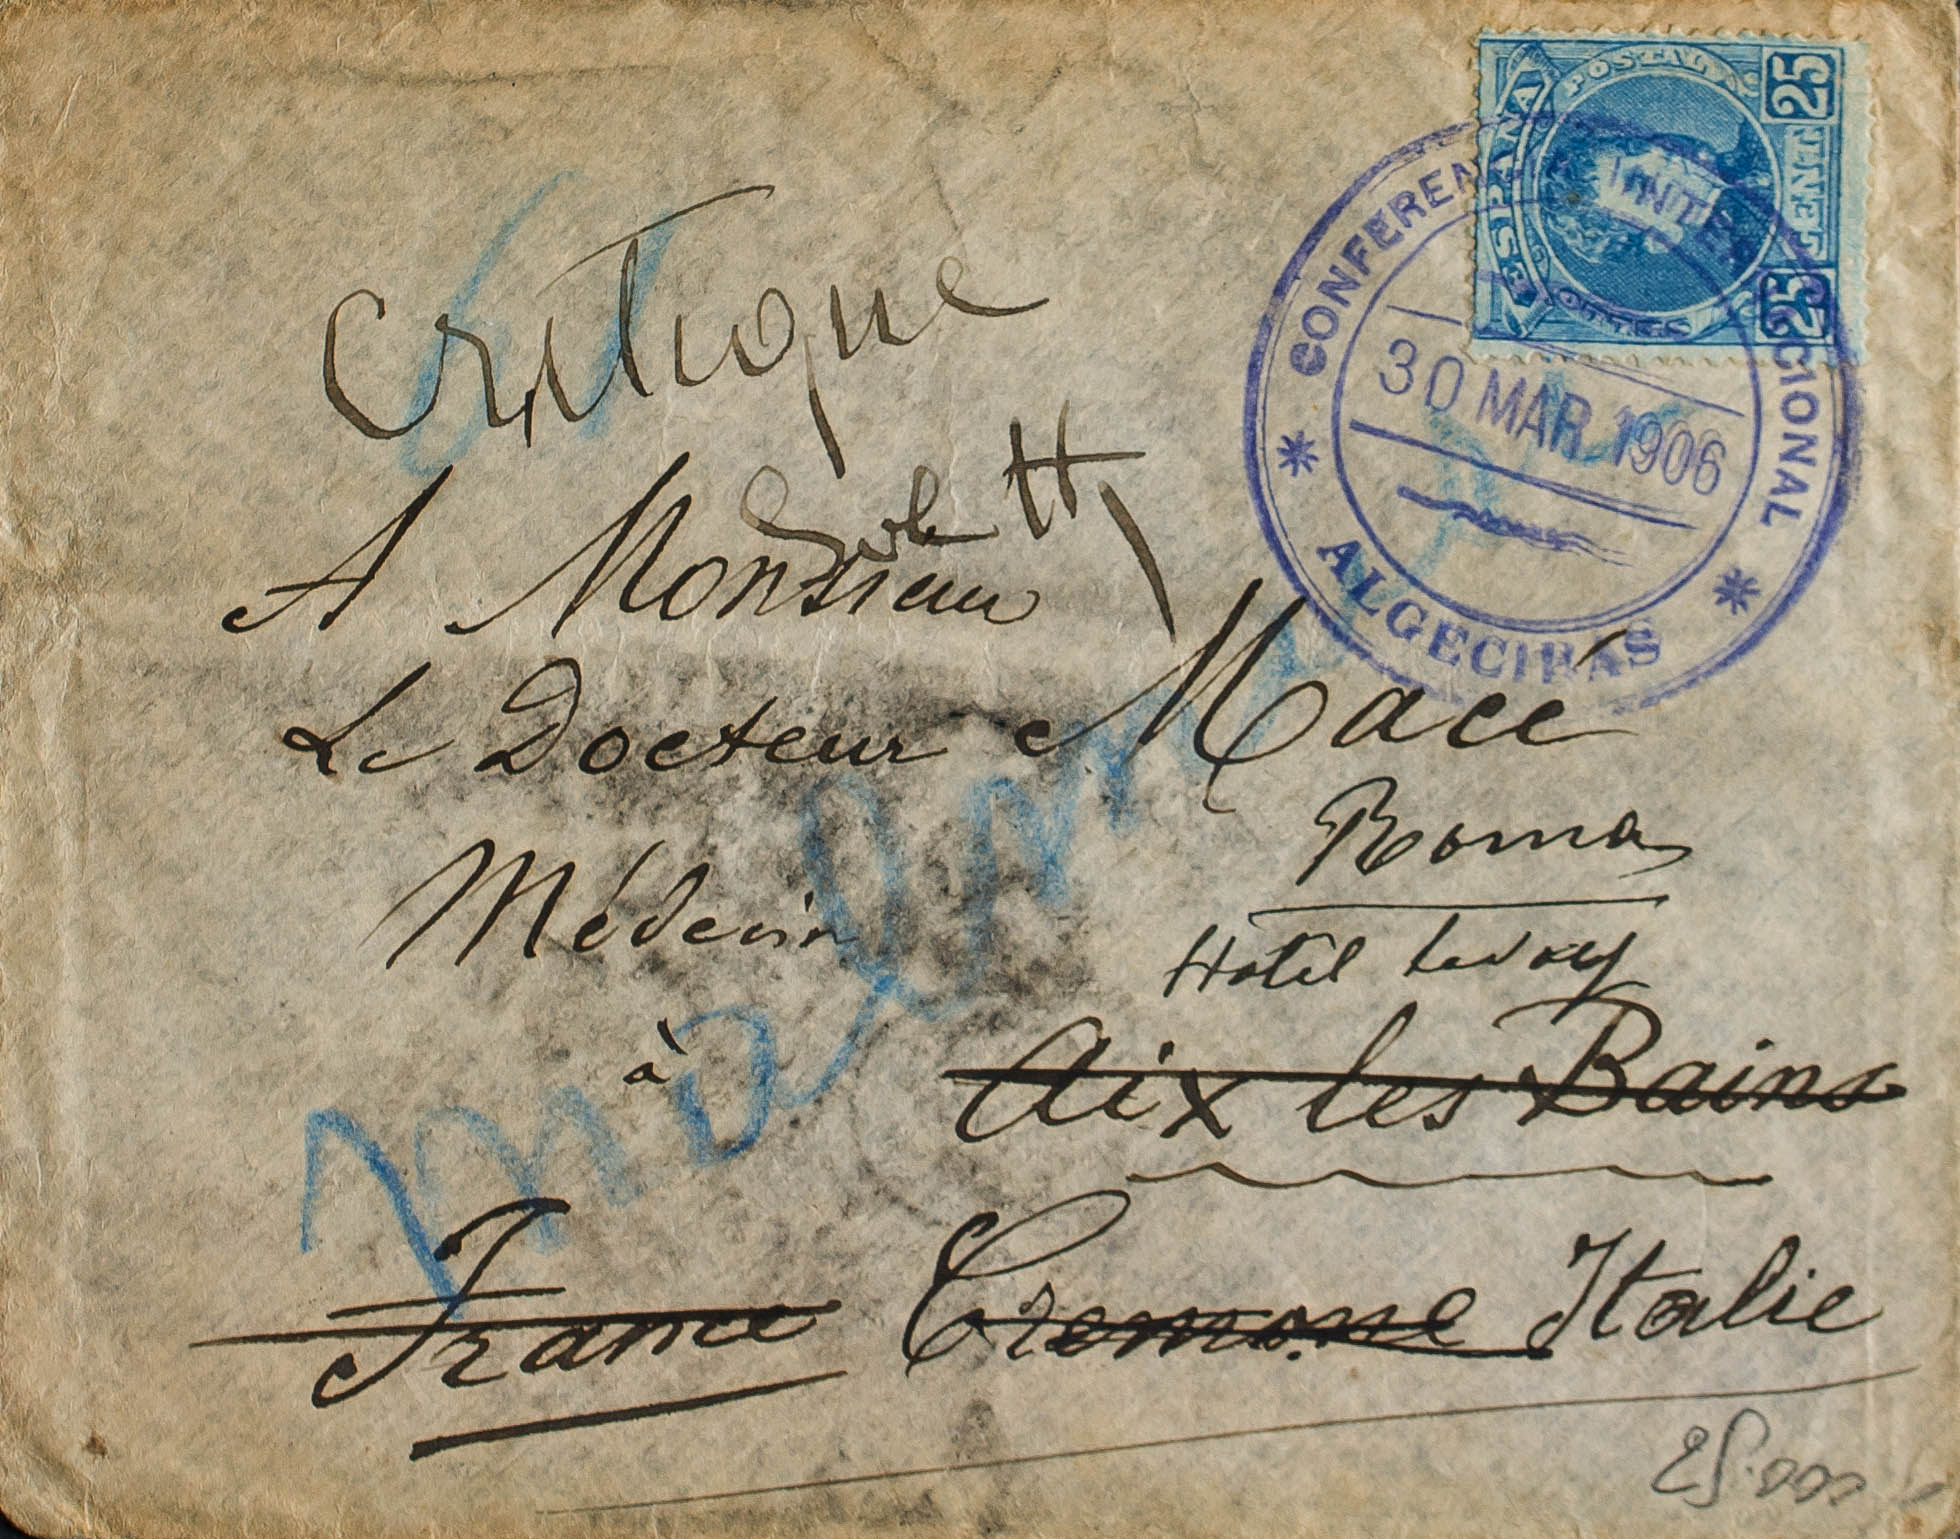 ESPAÑA
POSTAL
25 CENT 25
CONFERENCIA INTERNACIONAL
30 MAR. 1906
ALGECIRAS
Critique
A Monsieur
Le Docteur Macé
Roma
Médecin
Hotel
à Aix les Bains
France Cremone Italie
25.000